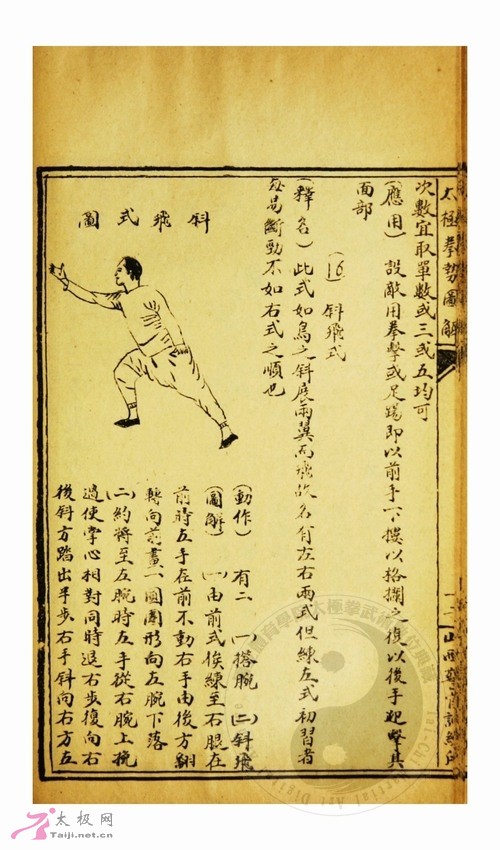 太極拳勢圖解
次數宜取單數或三或五均可
(應用)設敵用拳擊或足踢即以前手下摟以格攔之復以後手迎擊其
面部
(16)斜飛式
(釋名)此式如鳥之斜展兩翼而飛故名有左右兩式但練左式初習者
每易斷勁不如右式之順也
斜飛式圖
(動作)有二 (一)搭腕 (二)斜飛
(圖解)(一)由前式俟練至右腿在
前時左手在前不動右手由後方翻
轉向前畫一圓圈形向左腕下落
(二)約將至左腕時左手從右腕上挽
過使掌心相對同時退右步復向右
後斜方踏出半步右手斜向右方左
太极网
Taiji.net.cn